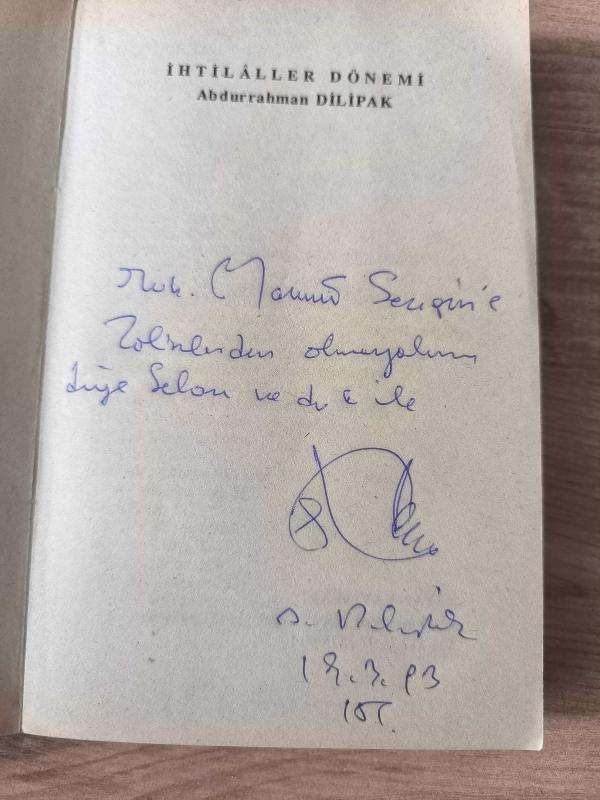 İHTİLÂLLER DÖNEMİ
Abdurrahman DİLİPAK
Muh. Mahmud Sezgin'e
Zalimlerden olmayalım
diye Selam ve dua ile
A. Dilipak
19.3.93
İST.